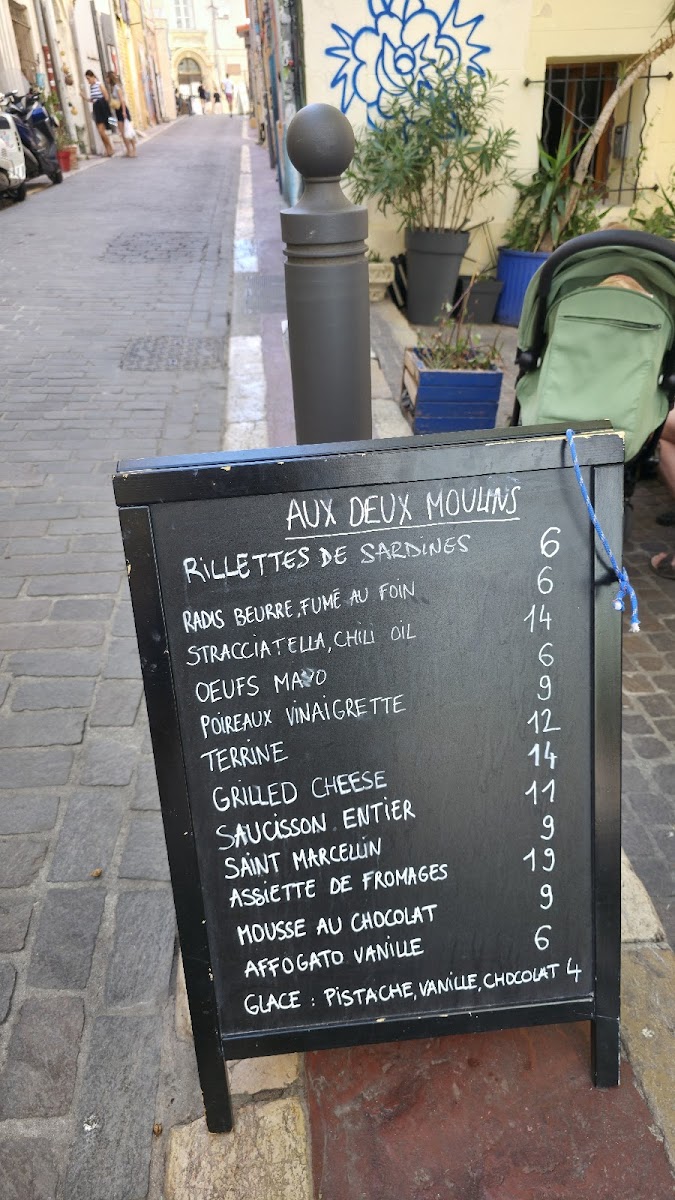 AUX DEUX MOULINS
RILLETTES DE SARDINES 6
RADIS BEURRE, FUMÉ AU FOIN 6
STRACCIATELLA, CHILI OIL 14
OEUFS MAYO 6
POIREAUX VINAIGRETTE 9
TERRINE 12
GRILLED CHEESE 14
SAUCISSON ENTIER 11
SAINT MARCELLIN 9
ASSIETTE DE FROMAGES 19
MOUSSE AU CHOCOLAT 9
AFFOGATO VANILLE 6
GLACE : PISTACHE, VANILLE, CHOCOLAT 4